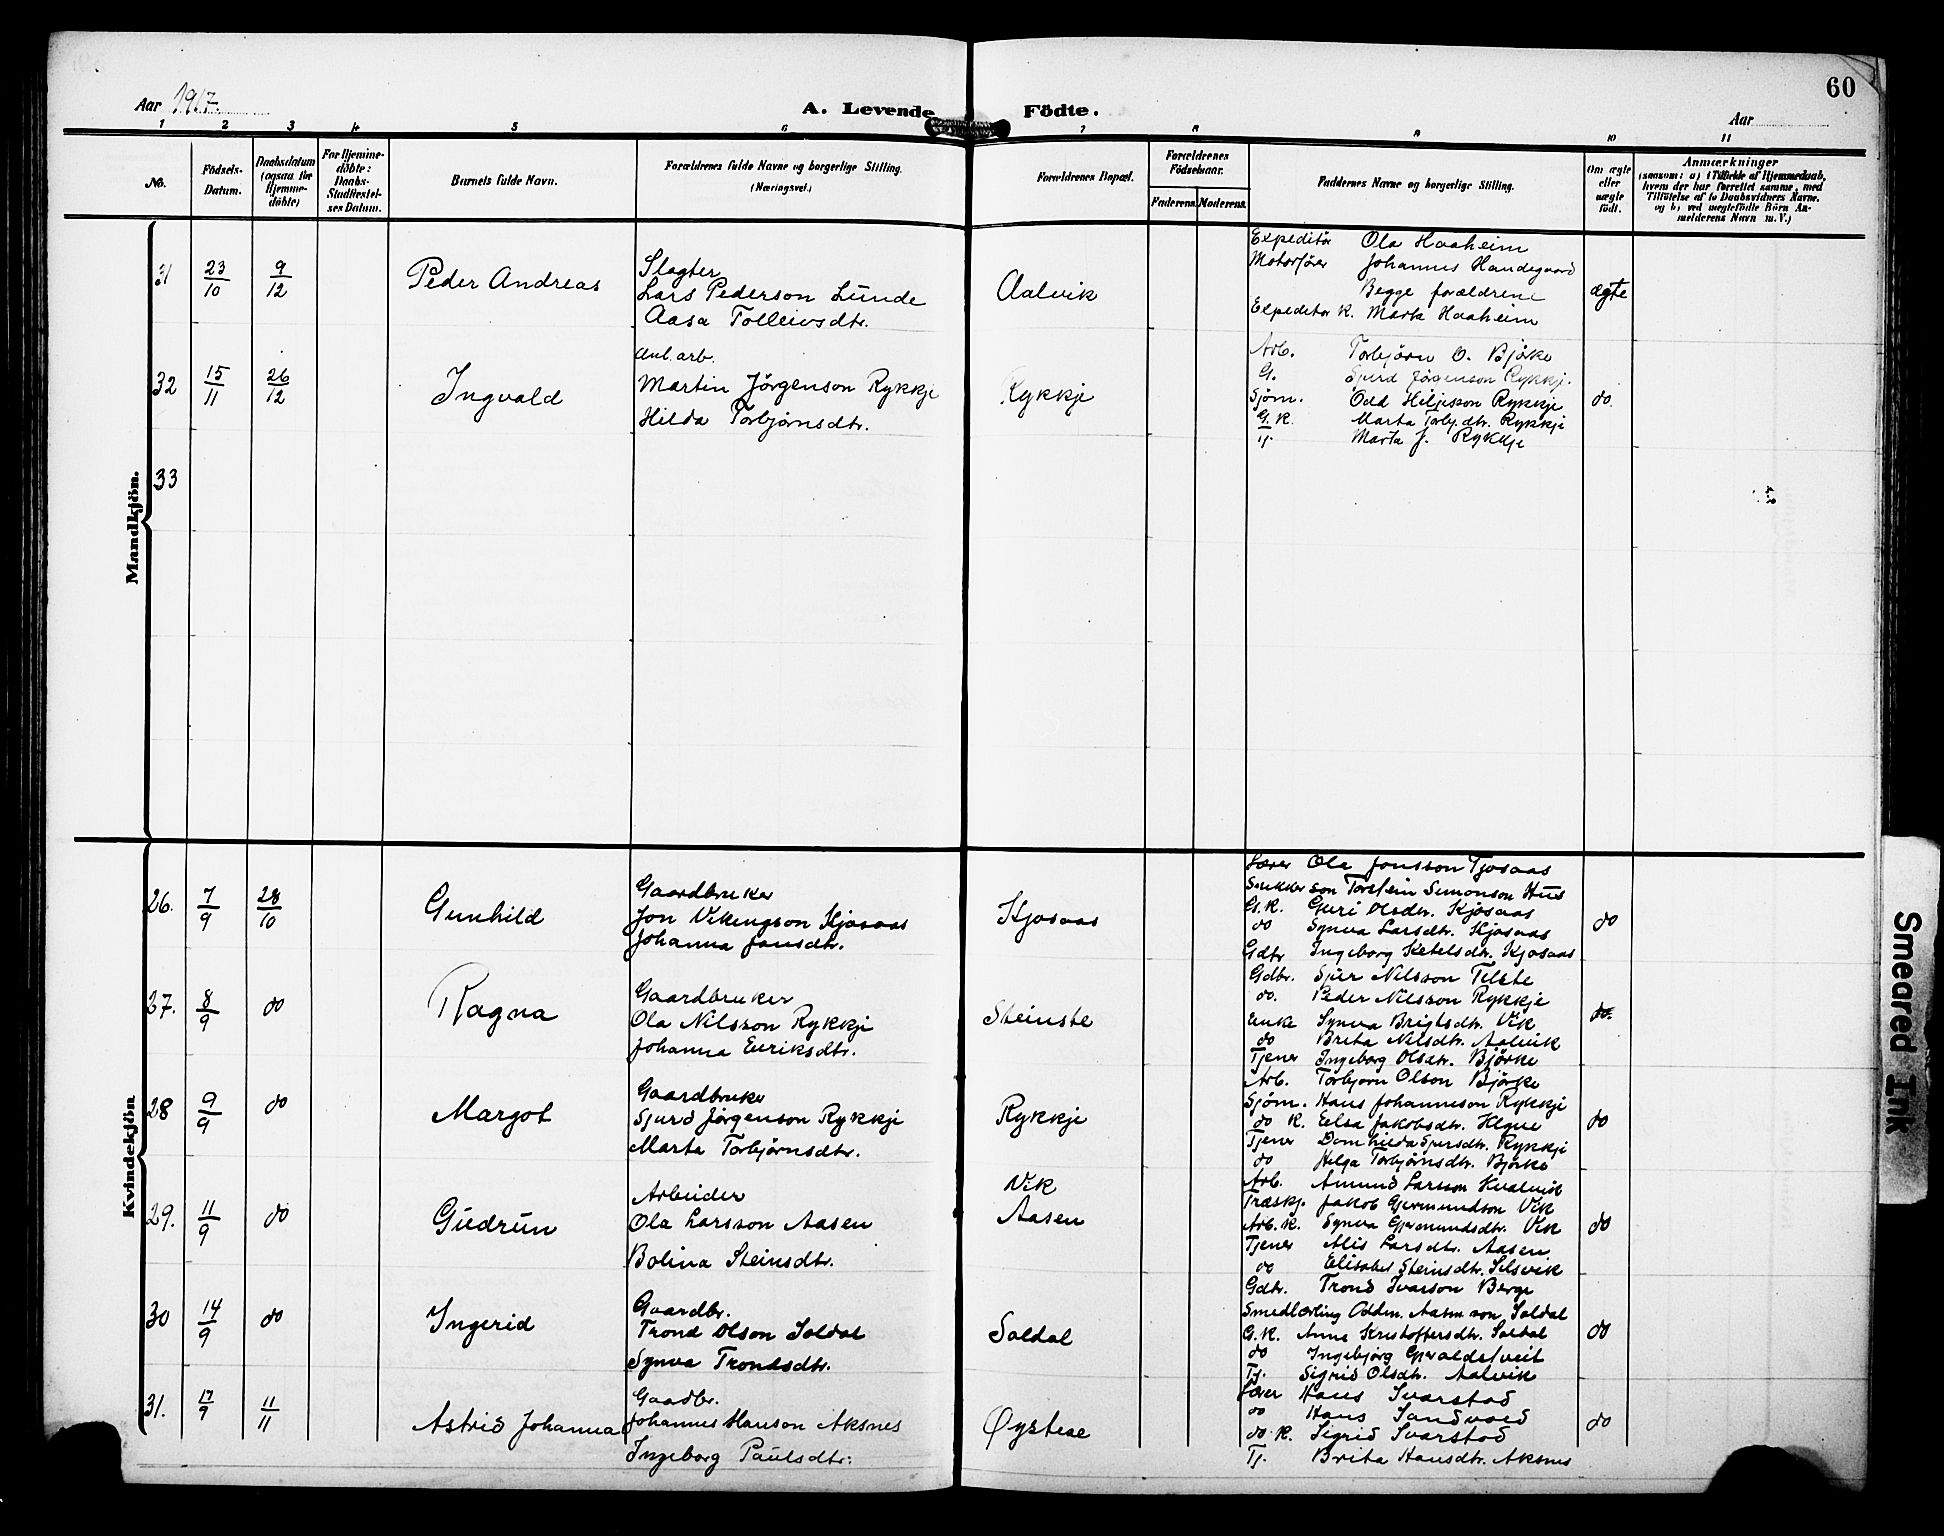 60
Aar 1917.
A. Levende Födte.
Aar
1 2 3 4 5 6 7 8 9 10 11
No.
Födsels-Datum.
Daabsdatum (ogsaa for Hjemme-döbte)
For Hjemme-döbte: Daabs-Stadfæstel-ses Datum.
Barnets fulde Navn.
Forældrenes fulde Navne og borgerlige Stilling. (Næringsvei.)
Forældrenes Bopæl.
Forældrenes Födselsaar.
Faderens. Moderens.
Faddernes Navne og borgerlige Stilling.
Om ægte eller uægte födt.
Anmærkninger
(saasom: a) i Tilfælde af Hjemmedaab,
hvem der har forrettet samme, med
Tilföielse af to Daabsvidners Navne.
og b) ved uægtefödte Börn An-
melderens Navn m. V.)
Mandkjön.
31 23/10 9/12 Peder Andreas
Slagter
Lars Pederson Lunde
Aasa Tolleivsdtr.
Aalvik
Expeditør Ola Haaheim
Motorfører Johannes Handegaard
Begge forældrene
Expeditør K. Marta Haaheim
ægte
32 15/11 26/12 Ingvald
Anl. arb.
Martin Jörgenson Rykkje
Hilda Torbjørnsdtr.
Rykkje
Arb. Torbjørn O. Bjöke
G. Sjurd Jörgenson Rykkj.
Sjöm. Odd Hiljesson Rykkje
G. K. Marta Torbj.dtr. Rykkje
Marta J. Rykkje
do.
33
Kvindekjön
26. 7/9 28/10 Gunhild
Gaardbruker
Jon Vikingson Kjosaas
Johanna Jonsdtr.
Kjosaas
Lærer Ola Jonsson Tjosaas
Snikker son Torstein Simonson Hus
G.K. Guri Olsdtr. Kjosaas
do Synva Larsdtr. Kjosaas
Gdtr Ingeborg Ketelsdtr. Kjosaas
do
27. 8/9 do Ragna
Gaardbruker
Ola Nilsson Rykkje
Johanna Eiriksdtr.
Steinstø
Gdbr. Sjur Nilsson Telste
do. Peder Nilsson Rykkje
Enke Synva Brigtsdtr. Vik
do Brita Nilsdtr. Aalvik
Tjener Ingeborg Olsdtr. Björke
do.
28 9/9 do Margot
Gaardbruker
Sjurd Jørgenson Rykkje
Marta Torbjørnsdtr.
Rykkje
Arb. Torbjorn Olson Björke
Sjöm. Hans Johanneson Rykkje
do K. Eelsa Jakobsdtr. Hegne
Tjener Domhilda Sjursdtr. Rykkje
do Helga Torbjørnsdtr. Björke
do
29. 11/9 do Gudrun
Arbeider
Ola Larsson Aasen
Bolina Steinsdtr.
Vik
Aasen
Arb. Amund Larsson Kvalvik
Træskj. Jakob Germundson Vik
Arb. K. Synva Germundsdtr. Vik
Tjener Alis Larsdtr. Aasen
do Elisabet Steinsdtr. Silsvik
do
30 14/9 do Ingerid
Gaardbr.
Trond Olson Soldal
Synva Trondsdtr.
Soldal
Gdtr. Trond Ivarson Berge
Smedlærling Oddm. Aasm son Soldal
G.K. Anna Kristoffersdtr. Soldal
do Ingebjörg Gjeraldstveit
Tj. Sigrid Olsdtr. Aalvik
do
31. 17/9 11/11 Astrid Johanna
Gaardbr.
Johannes Hanson Aksnes
Ingeborg Paulsdtr.
Øystese
Lærer Hans Svarstad
do Hans Sandven
do K. Sigrid Svarstad
Tj. Brita Hansdtr. Aksnes
do
Smeared Ink